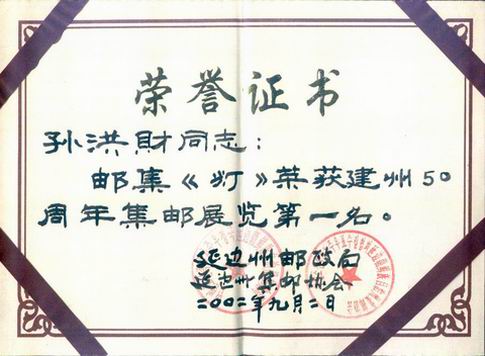 荣誉证书
孙洪财同志：
邮集《灯》荣获建州50
周年集邮展览第一名。
延边州邮政局
延边州集邮协会
二00二年九月二日